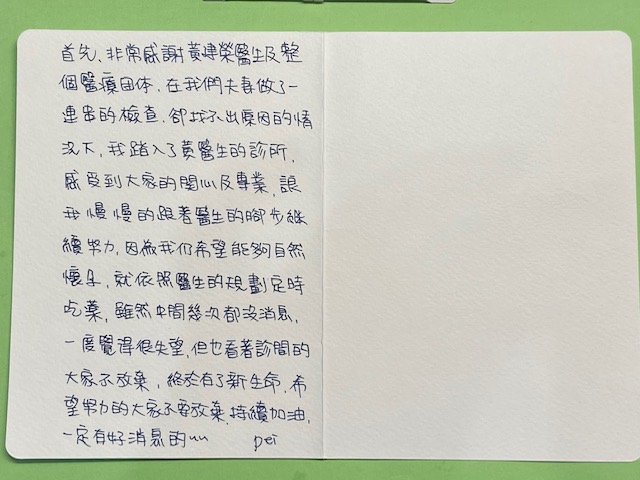 首先、非常感謝黃建榮醫生及整
個醫療団体，在我們夫妻做了一
連串的檢查，卻找不出原因的情
況下，我踏入了黃醫生的診所，
感受到大家的関心及專業，讓
我慢慢的跟著醫生的腳步繼
續努力，因為我仍希望能夠自然
懷孕，就依照醫生的規劃定時
吃藥，雖然中間幾次都沒消息，
一度覺得很失望，但也看著診間的
大家不放棄，終於有了新生命，希
望努力的大家不要放棄，持續加油，
一定有好消息的~~ pei